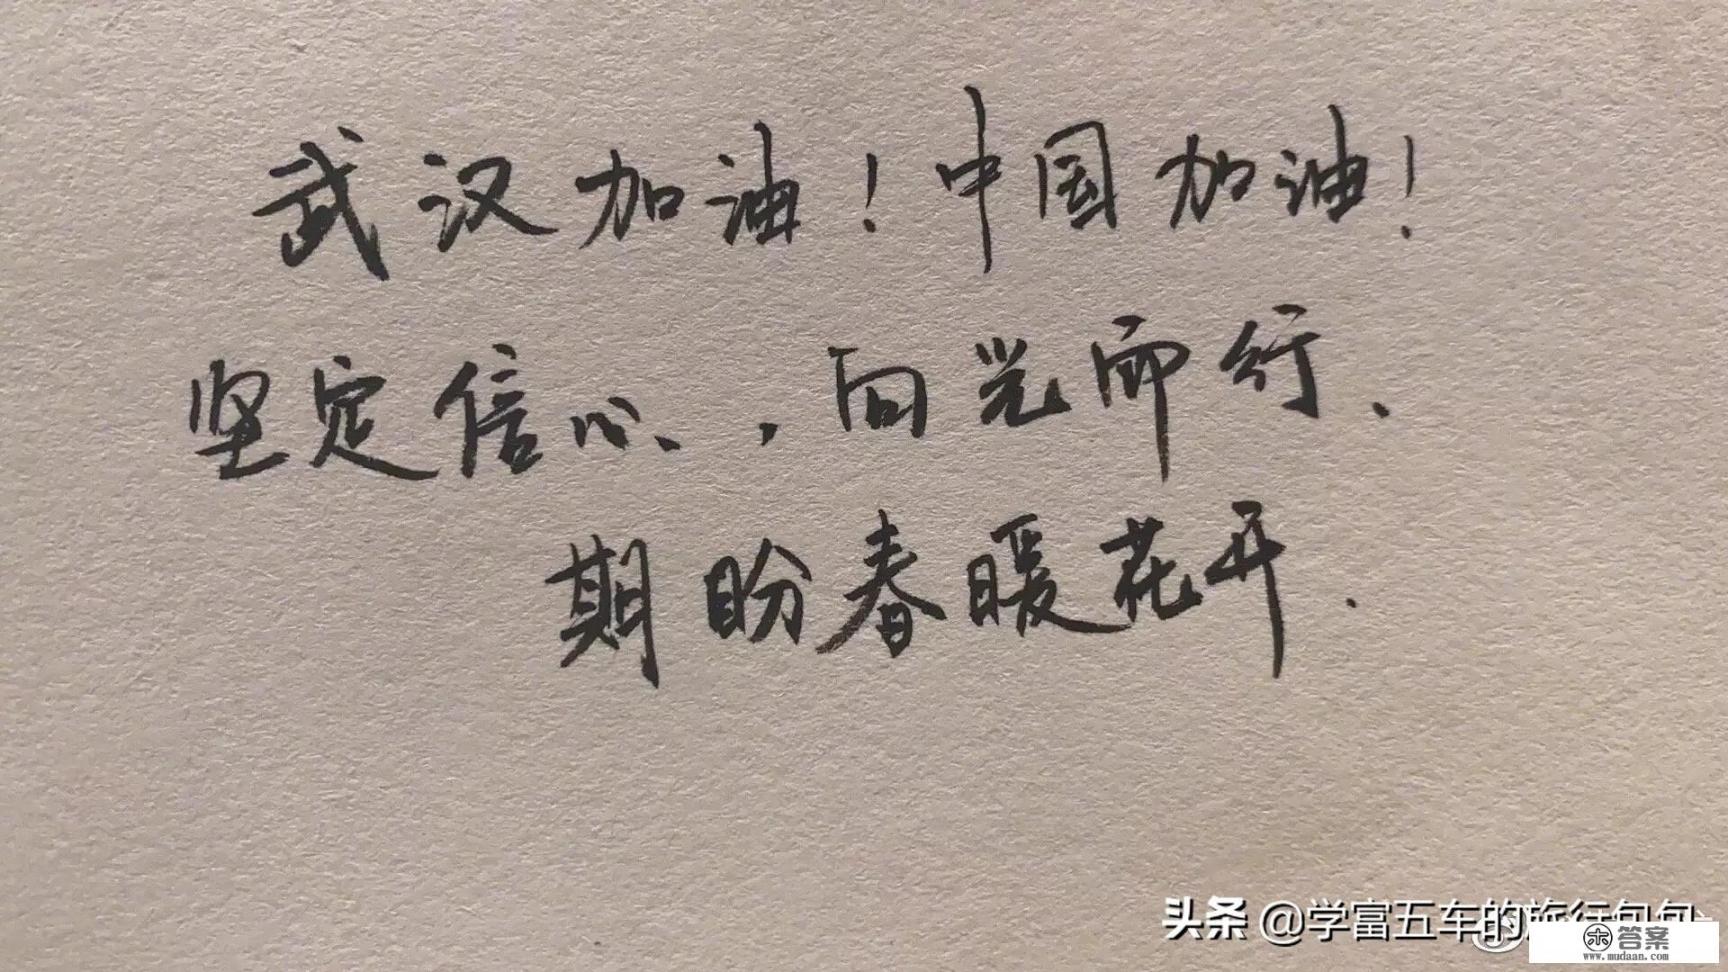 武汉加油！中国加油！
坚定信心，向光而行、
期盼春暖花开.
头条 @学富五车的旅行包包
答案
www.mudaan.com